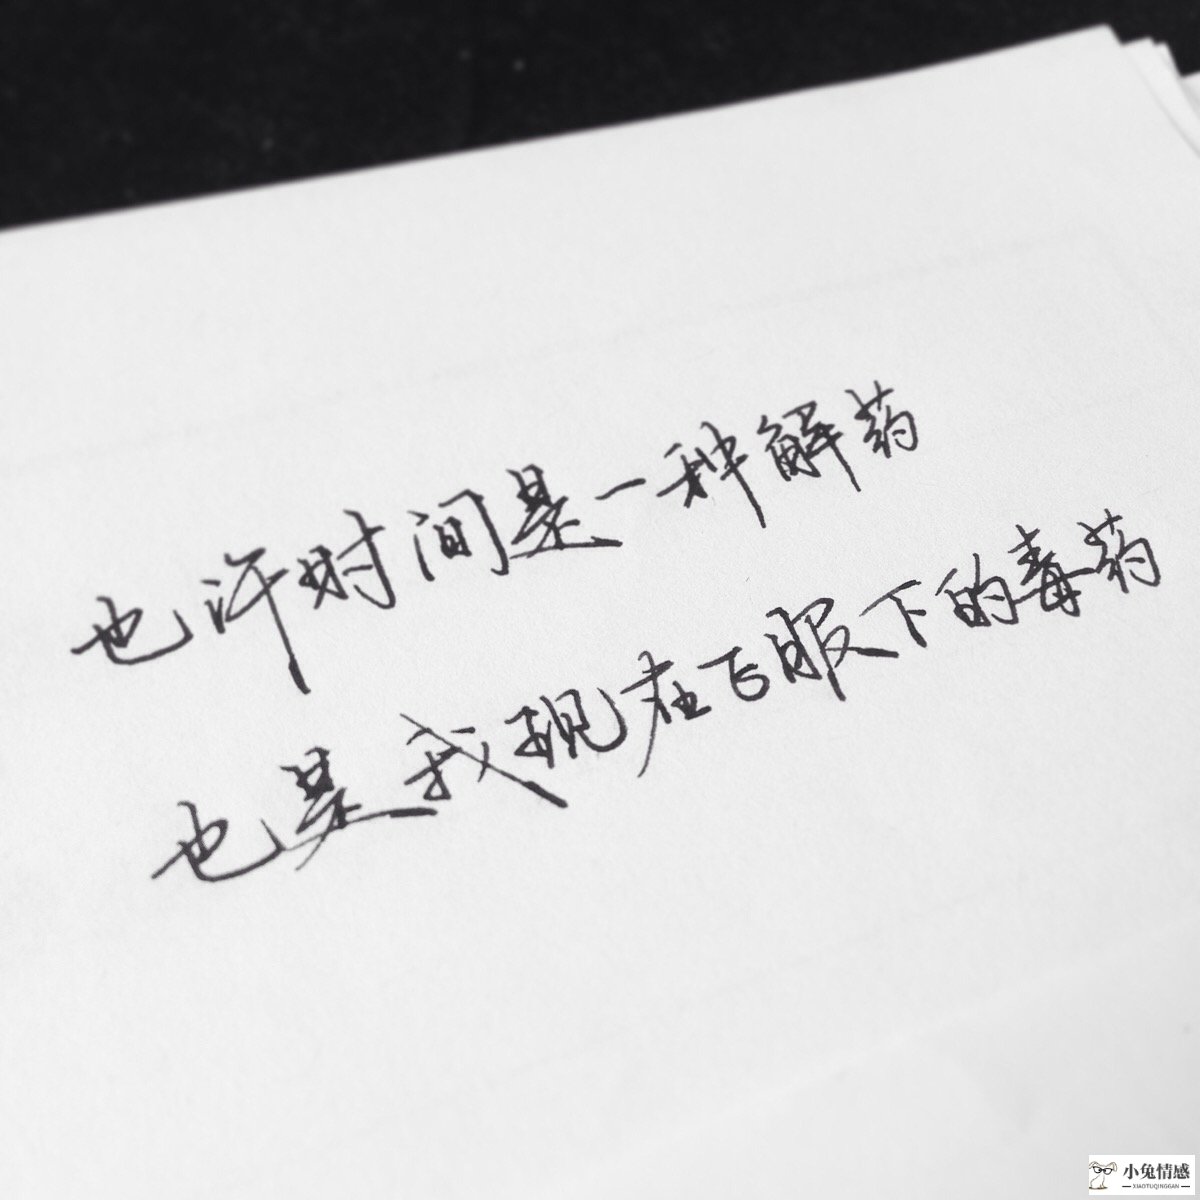 也许时间是一种解药
也是我现在正服下的毒药
小兔情感
XIAOTUQINGGAN